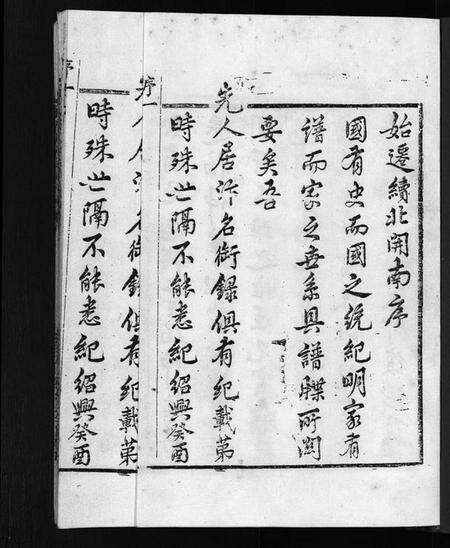 始遷續北開南序
國有史而國之統紀明家有
譜而家之世系具譜牒所關
要矣吾
先人居汴名銜錄俱有紀載第
時殊世隔不能悉紀紹興癸酉
序一
人居汴名銜錄俱有紀載第
時殊世隔不能悉紀紹興癸酉
序一